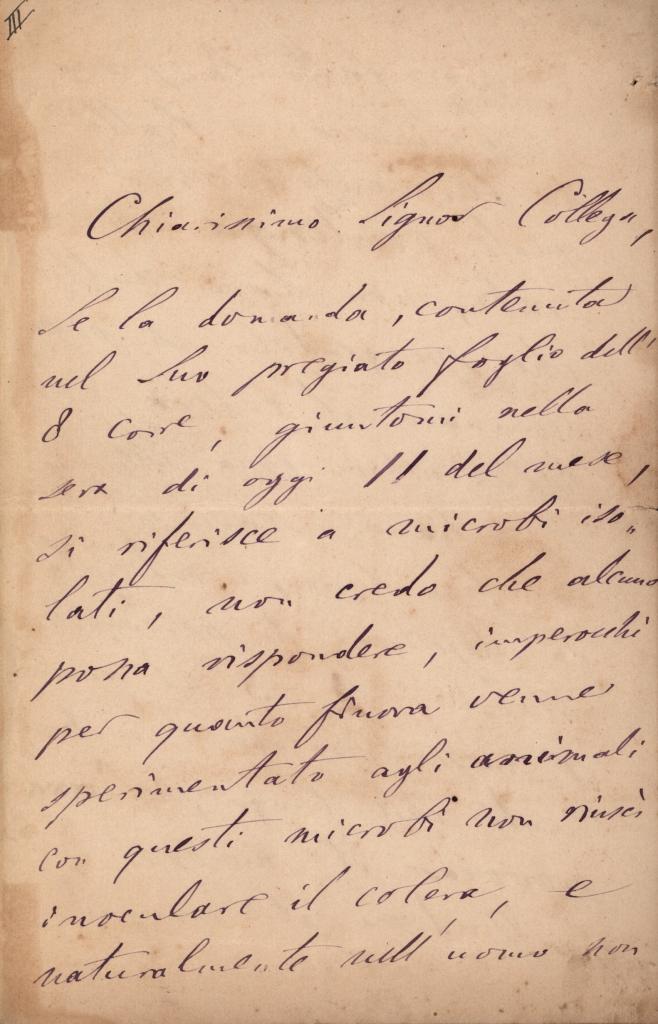 III
Chiarissimo Signor Collega,
Se la domanda, contenuta
nel Suo pregiato foglio dell'
8 corre, giuntomi nella
sera di oggi 11 del mese,
si riferisce a microbi iso„
lati, non credo che alcuno
possa rispondere, imperocchè
per quanto finora venne
sperimentato agli animali
con questi microbi non riuscì
inoculare il colera, e
naturalmente nell'uomo non